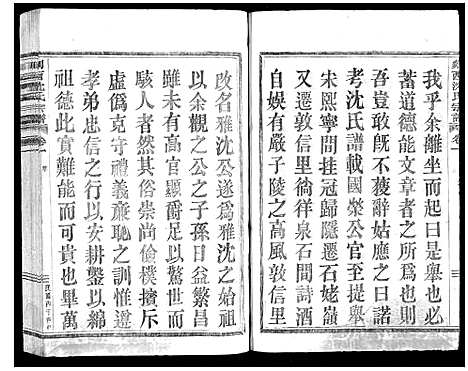 我乎余離坐而起曰是舉也必
蓄道德能文章者之所爲也則
吾豈敢旣不獲辭姑應之曰嘗
考沈氏譜載國榮公官至提舉
宋熙寧間挂冠歸隱遷石姥嶺
又遷敦信里徜徉泉石間詩酒
自娛有嚴子陵之高風敦信里
改名雅沈公遂爲雅沈之始祖
以余觀之公之子孫日益繁昌
雖未有高官顯爵足以驚世而
駭人者然其俗崇尚儉樸擯斥
虛僞克守禮義廉恥之訓惟遵
孝弟忠信之行以安耕鑿以綿
祖德此實難能而可貴也畢萬